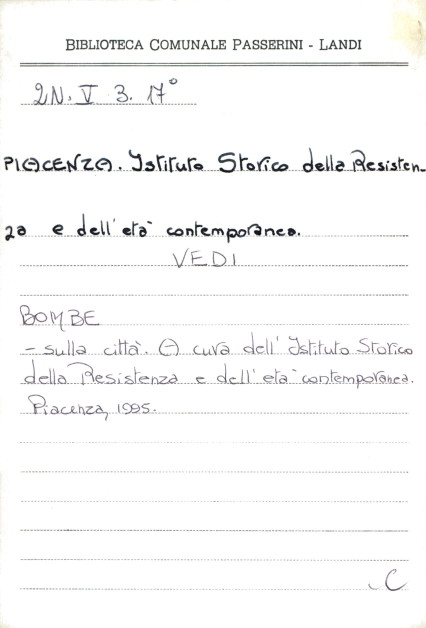 BIBLIOTECA COMUNALE PASSERINI - LANDI
2N. V 3. 17°
PIACENZA. Istituto Storico della Resisten_
za e dell'età contemporanea.
VEDI
BOMBE
- sulla città. A cura dell'Istituto Storico
della Resistenza e dell'età contemporanea.
Piacenza, 1995.
C